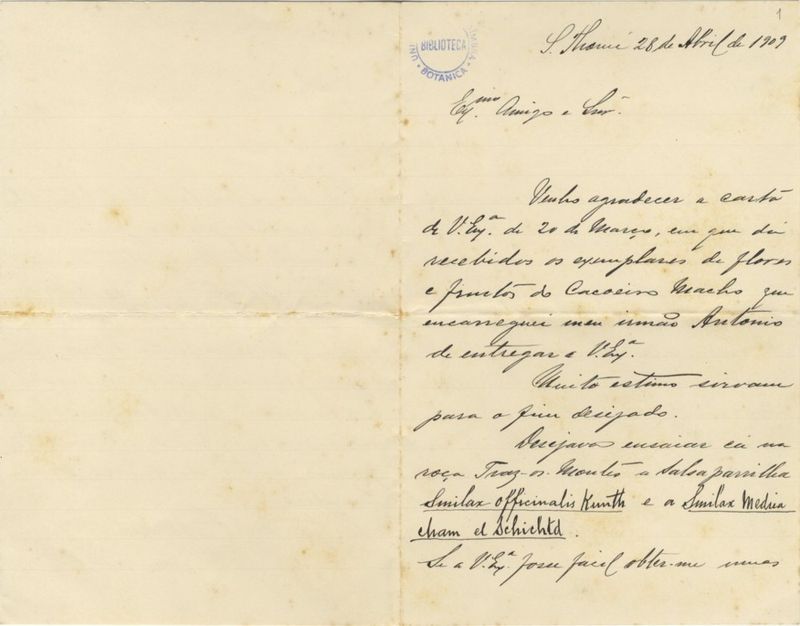 1
BIBLIOTECA
BOTANICA
S. Thomé 28 de Abril de 1909
Exmo. Amigo e Snr.
Venho agradecer a carta
de V. Exa. de 20 de Março, em que diz
recebidos os exemplares de flores
e fructos do Cacoeiro Macho que
encarreguei meu irmão Antonio
de entregar a V. Exa.
Muito estimo sirvam
para o fim desejado.
Desejava ensaiar cá na
roça Traz-os-Montes a Salsaparrilha
Smilax officinalis Kunth e a Smilax Medica
cham el Schichtd.
Se a V. Exa. fosse facil obter-me umas